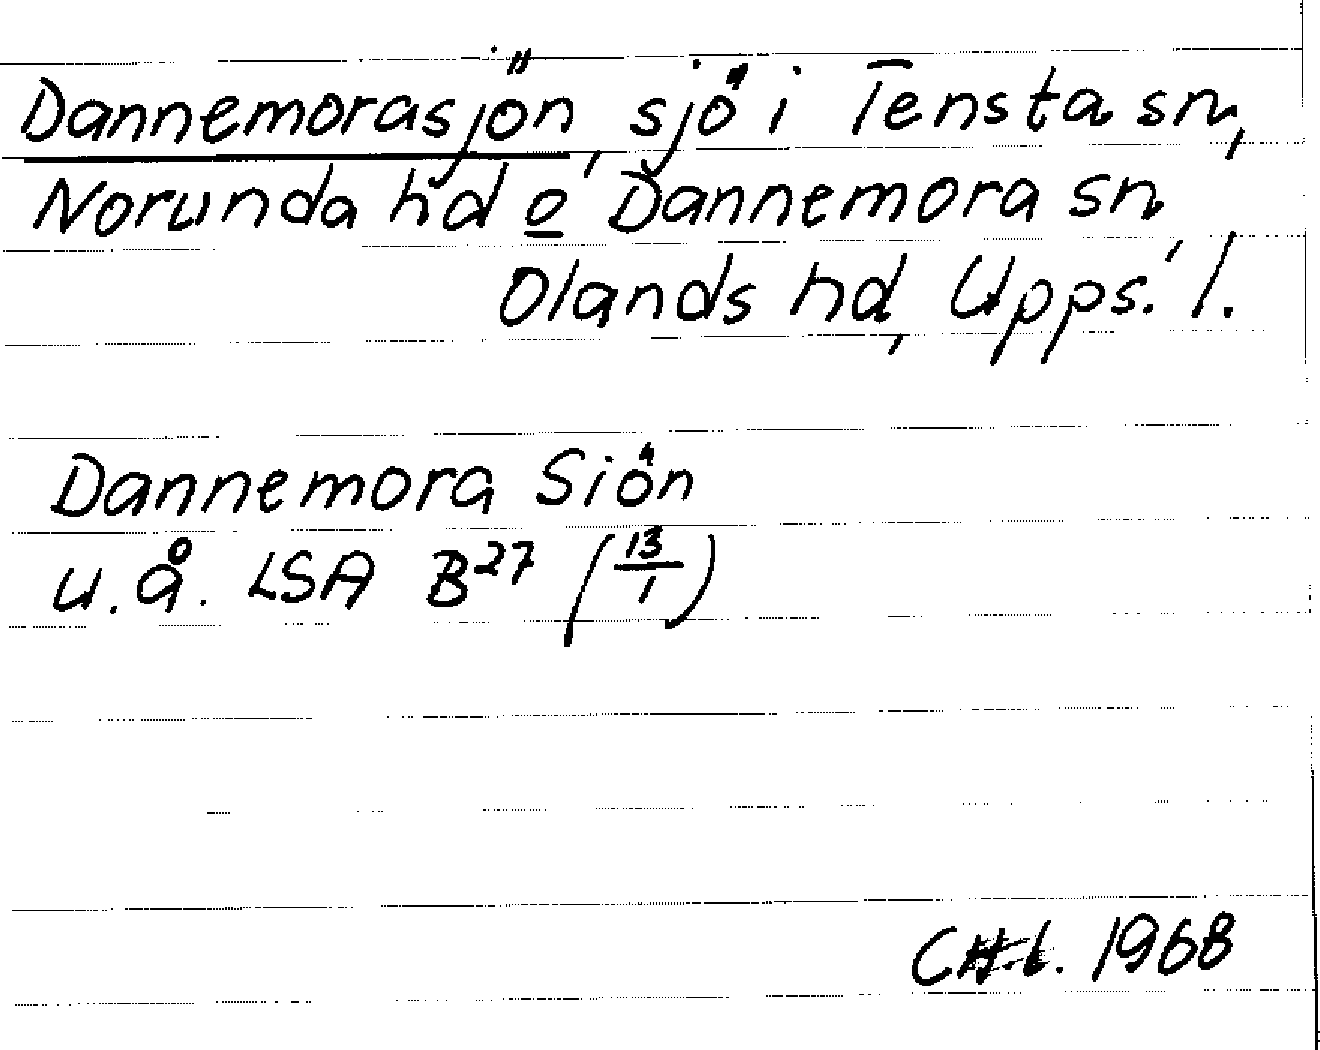 Dannemorasjön, sjö i Tensta sn,
Norunda hd o Dannemora sn
Olands hd, Upps. l.
Dannemora Siön
u.å. LSA B27 (13/1)
1968